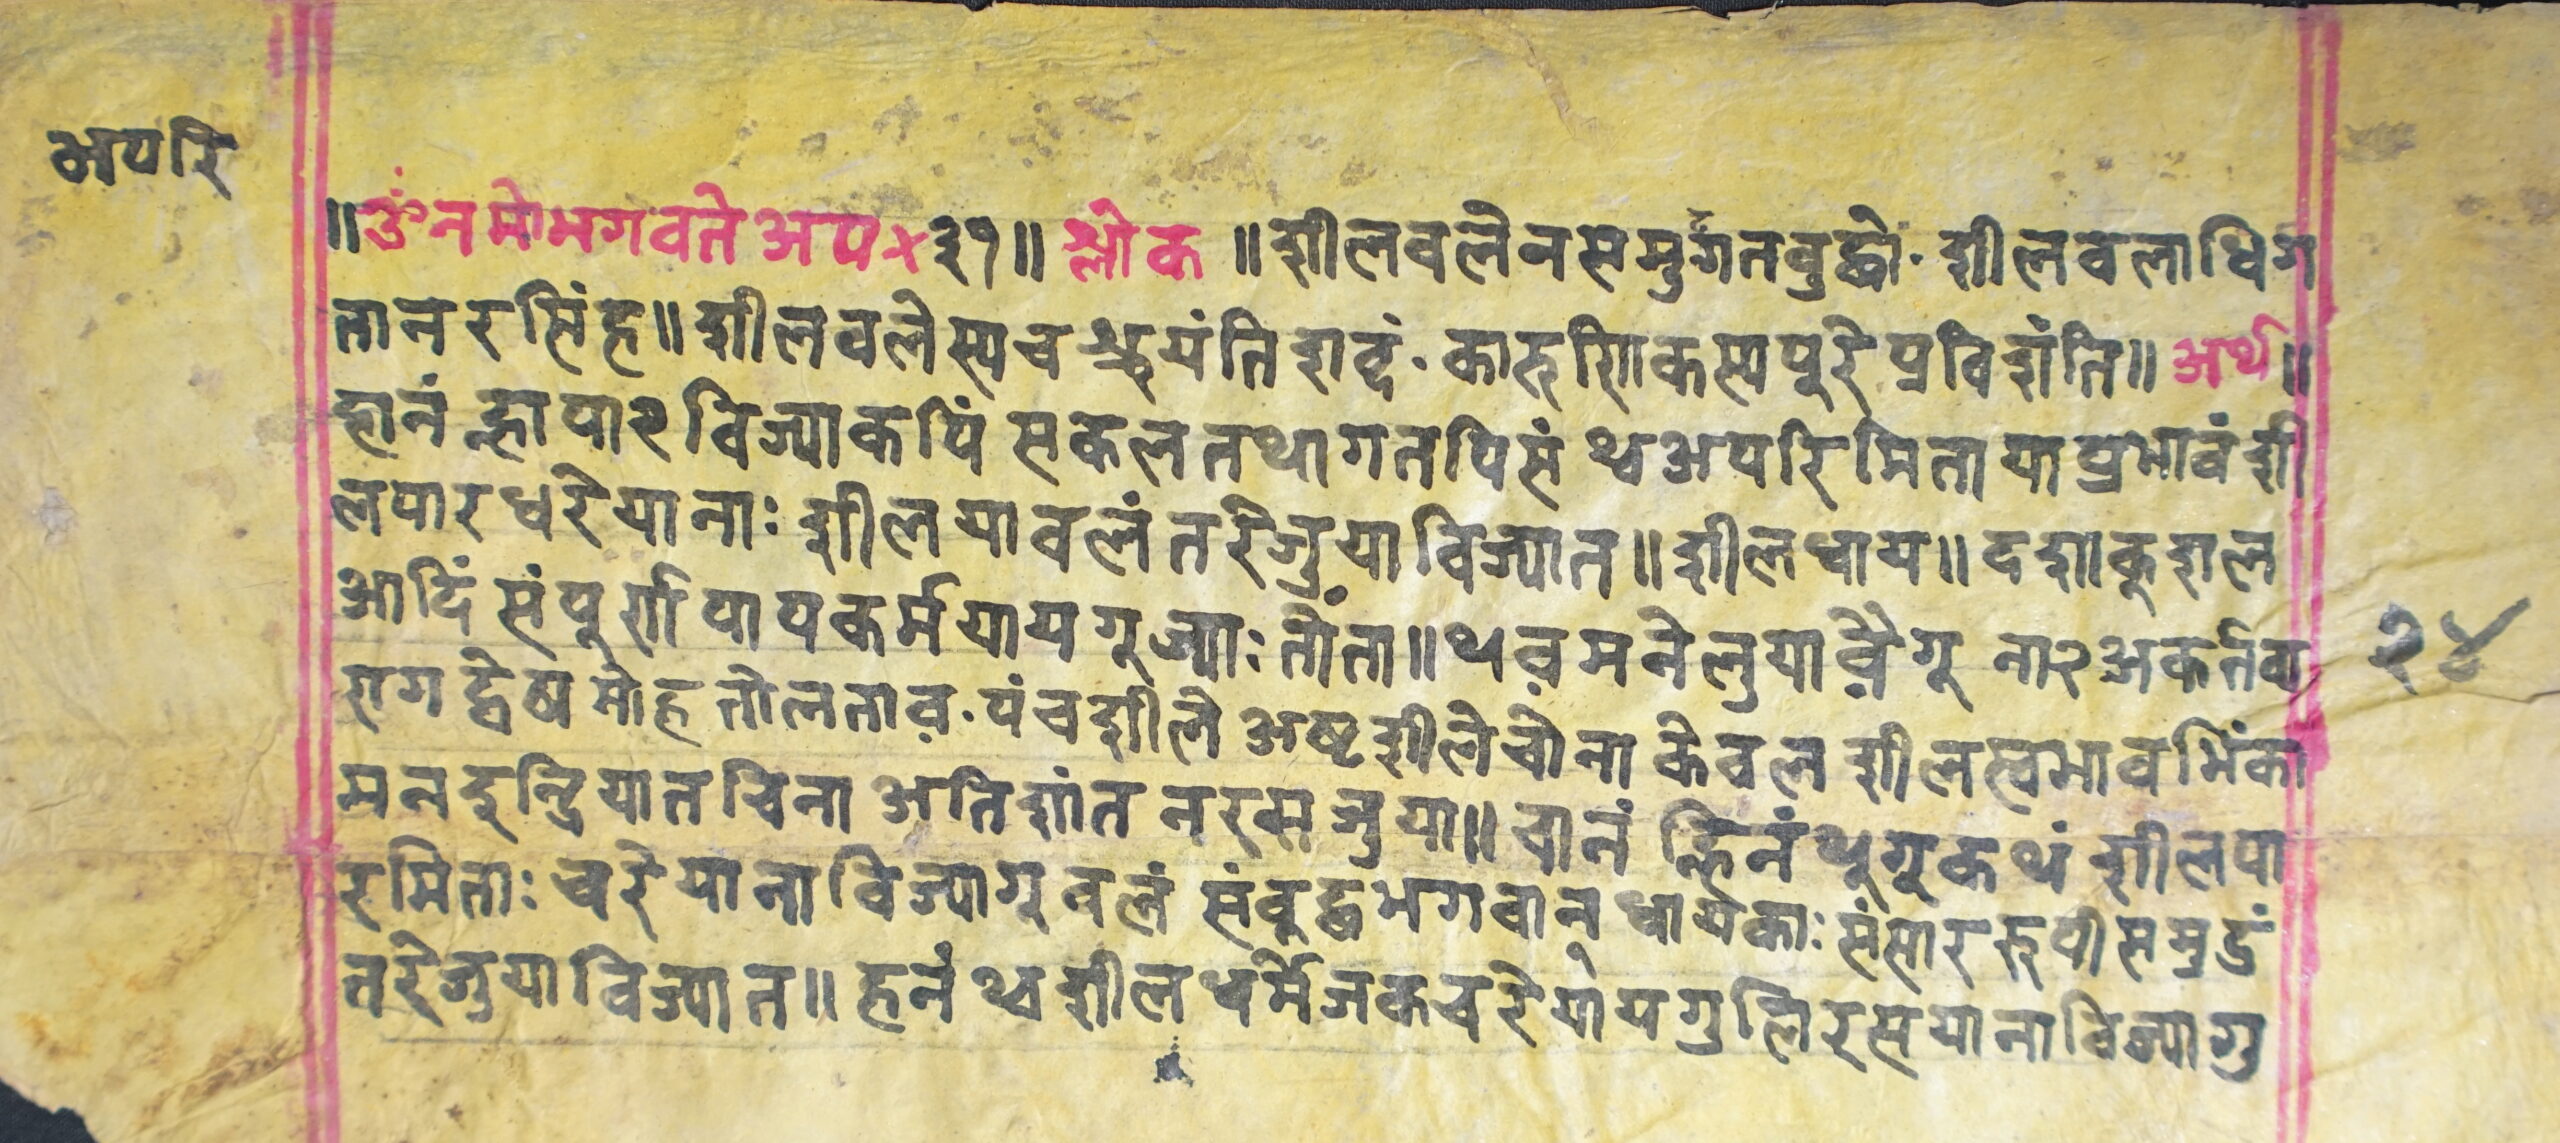 अपरि
॥ॐ नमो भगवते अप×३१॥ श्लोक ॥ शीलवलेन समुर्गतवुद्धो. शीलवलाधिग
ता नरसिंह॥ शीलवलेस्य च श्रुयंति शव्दं. कारुणिकस्य पुरे प्रविशंति॥ अर्थ॥
हानं ह्लापा२ विज्याकपिं सकल तथागतपिसं थ्व अपरिमिताया प्रभावं शी
लपार धरेयानाः शीलया वलं तरेजुया विज्यात॥ शील धाय॥ दशाकुशल
आदिं संपुर्ण पापकर्म यायगू ज्याः तोंता॥ थव मने लुयावैगू ना२ अकर्तवा
राग द्वेष मोह तोलताव. पंचशीलै अष्टशीलै चोना केवल शीलस्वभाव भिंका
मन इन्द्रियात चिना अतिशांत नरमजुया॥ चानं ह्निनं थुगू कथं शीलपा
रमिताः चरेयाना विज्यागू वलं संवुद्ध भगवान् धायेकाः संसाररुपी समुद्रं
तरेजुया विज्यात॥ हनं थ्व शीलधर्मे जक चरेयाय गुलि रसयाना विज्यागु
२४